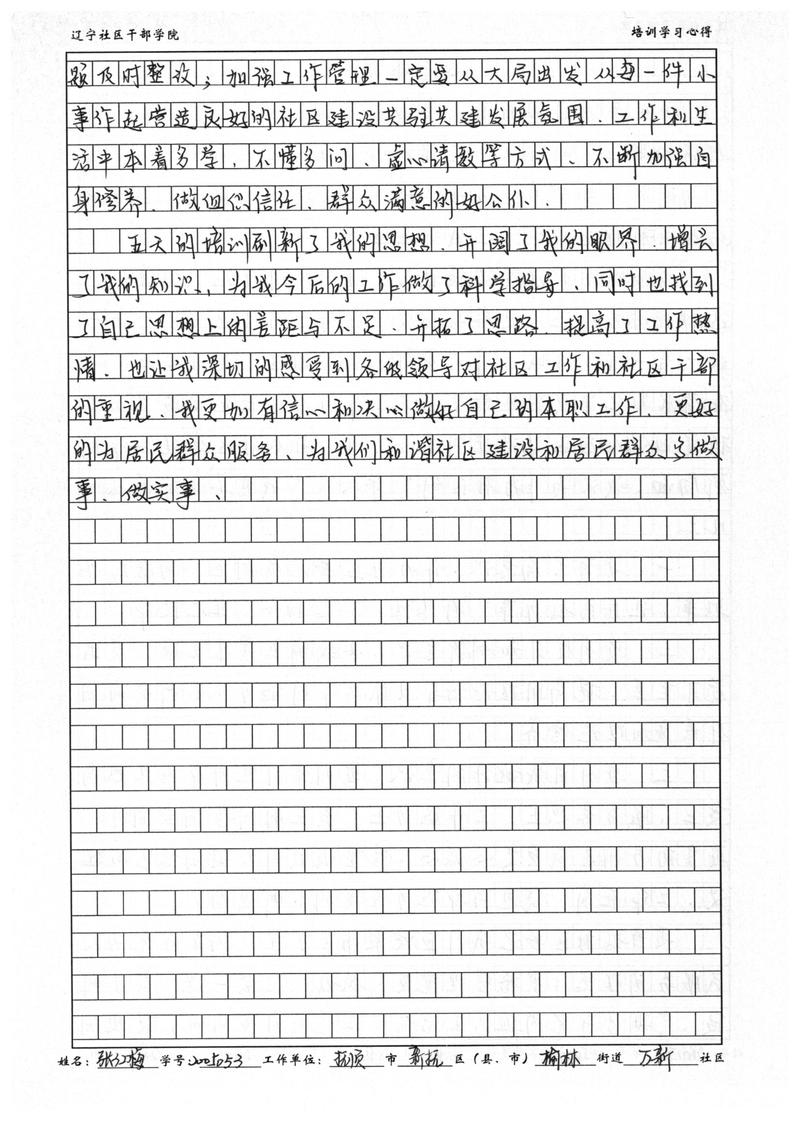 辽宁社区干部学院 培训学习心得
题及时整改；加强工作管理一定要从大局出发从每一件小
事作起营造良好的社区建设共驻共建发展氛围、工作和生
活中本着多学、不懂多问、虚心请教等方式、不断加强自
身修养、做组织信任、群众满意的好公仆、
五天的培训刷新了我的思想、开阔了我的眼界、增长
了我的知识、为我今后的工作做了科学指导、同时也找到
了自己思想上的差距与不足、开拓了思路、提高了工作热
情、也让我深切的感受到各级领导对社区工作和社区干部
的重视、我更加有信心和决心做好自己的本职工作、更好
的为居民群众服务、为我们和谐社区建设和居民群众多做
事、做实事、
姓名：张红梅 学号： 工作单位：抚顺市新抚区（县、市）榆林街道万新社区